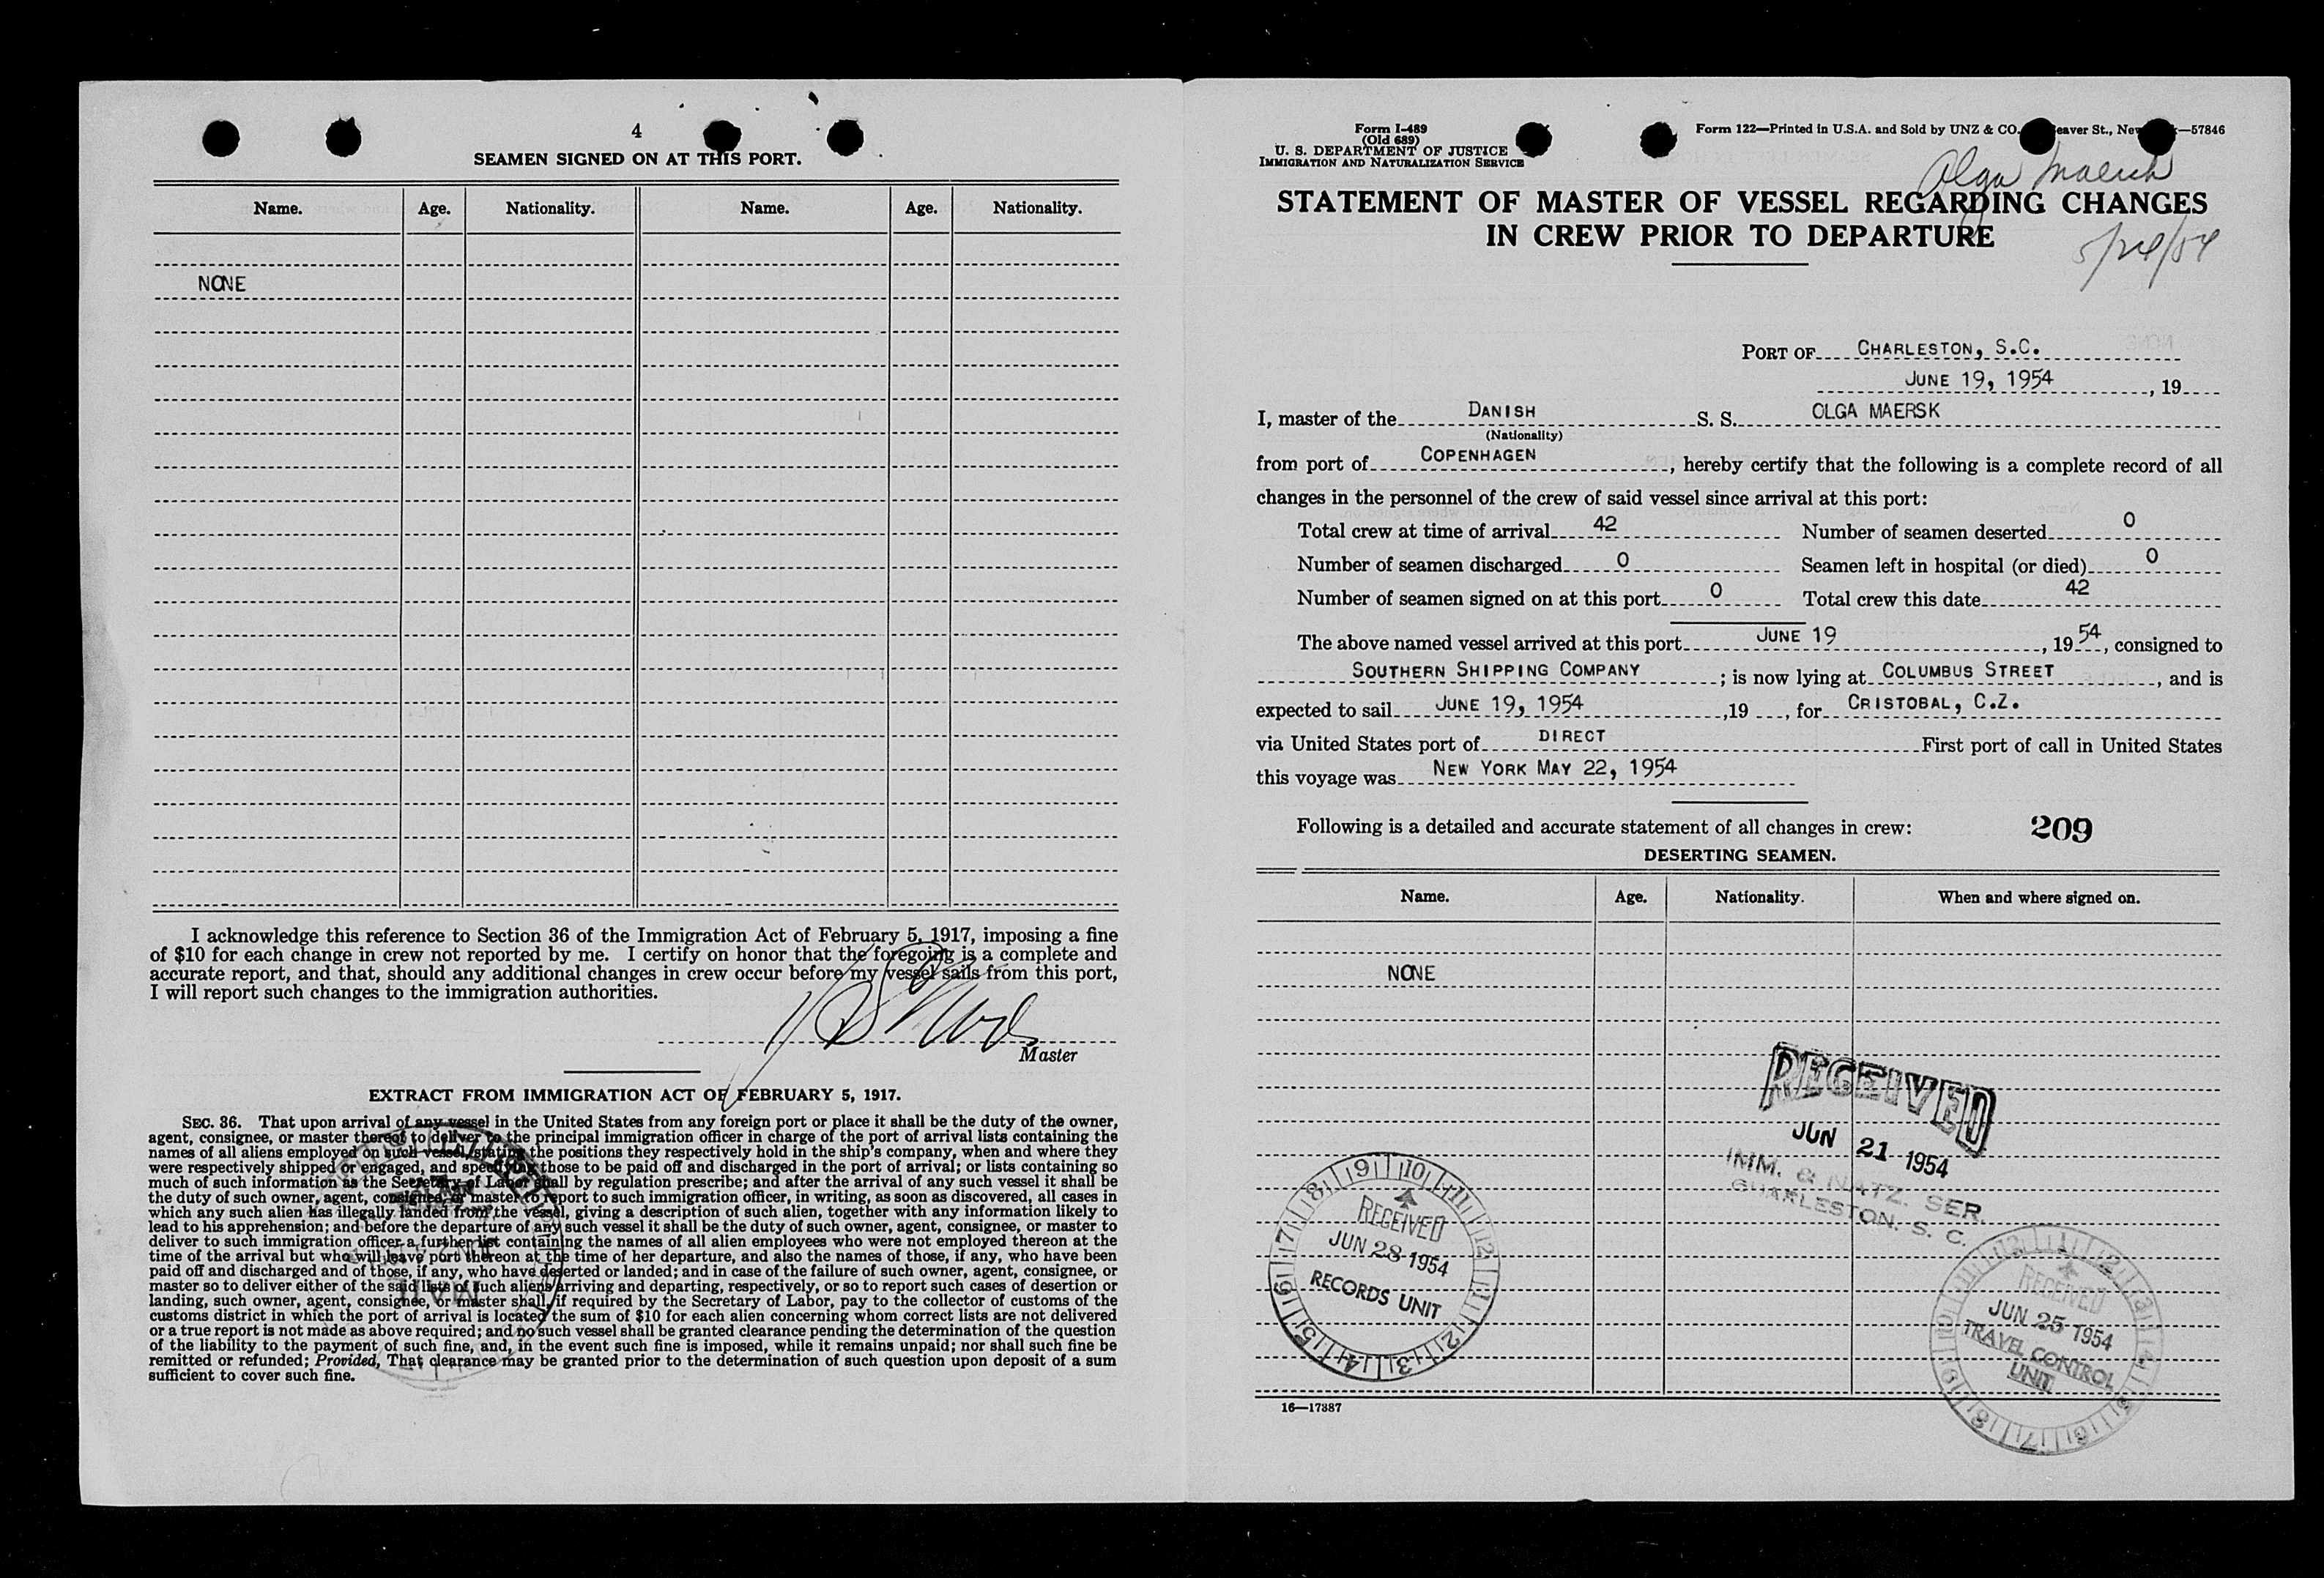 4
SEAMEN SIGNED ON AT THIS PORT.
Name. Age. Nationality. Name. Age. Nationality.
NONE
I acknowledge this reference to Section 36 of the Immigration Act of February 5, 1917, imposing a fine
of $10 for each change in crew not reported by me. I certify on honor that the foregoing is a complete and
accurate report, and that, should any additional changes in crew occur before my vessel sails from this port,
I will report such changes to the immigration authorities.
Master
EXTRACT FROM IMMIGRATION ACT OF FEBRUARY 5, 1917.
SEC. 36. That upon arrival of any vessel in the United States from any foreign port or place it shall be the duty of the owner,
agent, consignee, or master thereof to deliver to the principal immigration officer in charge of the port of arrival lists containing the
names of all aliens employed on such vessel, stating the positions they respectively hold in the ship's company, when and where they
were respectively shipped or engaged, and specifying those to be paid off and discharged in the port of arrival; or lists containing so
much of such information as the Secretary of Labor shall by regulation prescribe; and after the arrival of any such vessel it shall be
the duty of such owner, agent, consignee, or master to report to such immigration officer, in writing, as soon as discovered, all cases in
which any such alien has illegally landed from the vessel, giving a description of such alien, together with any information likely to
lead to his apprehension; and before the departure of any such vessel it shall be the duty of such owner, agent, consignee, or master to
deliver to such immigration officer a further list containing the names of all alien employees who were not employed thereon at the
time of the arrival but who will leave port thereon at the time of her departure, and also the names of those, if any, who have been
paid off and discharged and of those, if any, who have deserted or landed; and in case of the failure of such owner, agent, consignee, or
master so to deliver either of the said lists of such aliens arriving and departing, respectively, or so to report such cases of desertion or
landing, such owner, agent, consignee, or master shall, if required by the Secretary of Labor, pay to the collector of customs of the
customs district in which the port of arrival is located the sum of $10 for each alien concerning whom correct lists are not delivered
or a true report is not made as above required; and no such vessel shall be granted clearance pending the determination of the question
of the liability to the payment of such fine, and, in the event such fine is imposed, while it remains unpaid; nor shall such fine be
remitted or refunded; Provided, That clearance may be granted prior to the determination of such question upon deposit of a sum
sufficient to cover such fine.
MAIL
Form I-489
(Old 689)
U. S. DEPARTMENT OF JUSTICE
IMMIGRATION AND NATURALIZATION SERVICE
Form 122—Printed in U.S.A. and Sold by UNZ & CO. eaver St., New —57846
Olga Maersk
STATEMENT OF MASTER OF VESSEL REGARDING CHANGES
IN CREW PRIOR TO DEPARTURE
PORT OF CHARLESTON, S.C.
JUNE 19, 1954, 19
I, master of the DANISH S. S. OLGA MAERSK
(Nationality)
from port of COPENHAGEN, hereby certify that the following is a complete record of all
changes in the personnel of the crew of said vessel since arrival at this port:
Total crew at time of arrival 42 Number of seamen deserted 0
Number of seamen discharged 0 Seamen left in hospital (or died) 0
Number of seamen signed on at this port 0 Total crew this date 42
The above named vessel arrived at this port JUNE 19, 1954, consigned to
SOUTHERN SHIPPING COMPANY; is now lying at COLUMBUS STREET, and is
expected to sail JUNE 19, 1954, 19, for CRISTOBAL, C.Z.
via United States port of DIRECT First port of call in United States
this voyage was NEW YORK MAY 22, 1954
Following is a detailed and accurate statement of all changes in crew: 209
DESERTING SEAMEN.
Name. Age. Nationality. When and where signed on.
NONE
RECEIVED
JUN 21 1954
IMM. & NATZ. SER.
CHARLESTON, S. C.
RECEIVED
JUN 28 1954
RECORDS UNIT
RECEIVED
JUN 25 1954
TRAVEL CONTROL
UNIT
16—17887